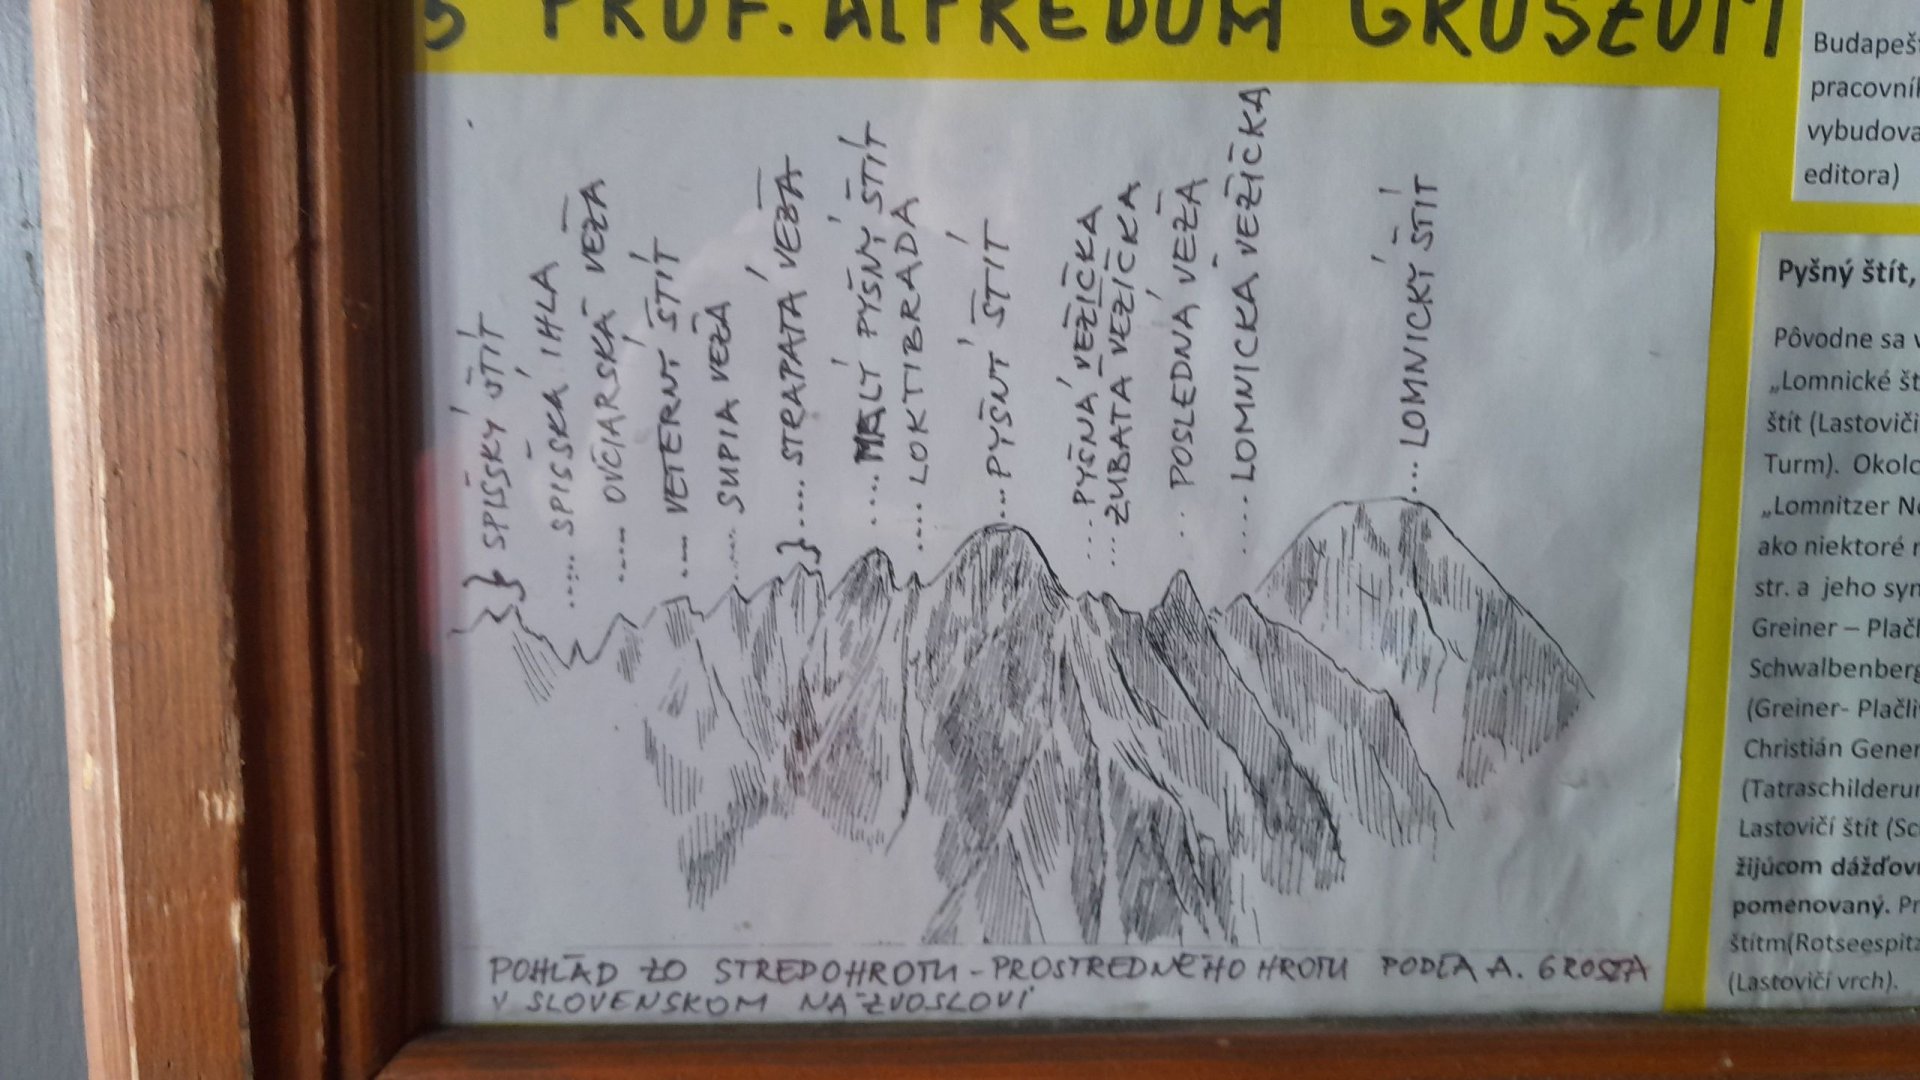 S PROF. ALFREDOM GROSZOM
SPIŠSKÝ ŠTÍT
SPIŠSKÁ IHLA
OVČIARSKA VEŽA
VETERNÝ ŠTÍT
SUPIA VEŽA
STRAPATÁ VEŽA
MALÝ PYŠNÝ ŠTÍT
LOKTIBRADA
PYŠNÝ ŠTÍT
PYŠNÁ VEŽIČKA
ZUBATÁ VEŽIČKA
POSLEDNÁ VEŽA
LOMNICKÁ VEŽIČKA
LOMNICKÝ ŠTÍT
POHĽAD ZO STREDOHROTU - PROSTREDNÉHO HROTU PODĽA A. GROSZA
V SLOVENSKOM NÁZVOSLOVÍ
Budapeš
pracovní
vybudova
editora)
Pyšný štít,
Pôvodne sa v
„Lomnické št
štít (Lastoviči
Turm). Okolo
„Lomnitzer No
ako niektoré
str. a jeho syn
Greiner – Plačl
Schwalbenberg
(Greiner- Plačli
Christián Gener
(Tatraschilderun
Lastovičí štít (Sc
žijúcom dážďov
pomenovaný. Pr
štítm(Rotseespitz
(Lastovičí vrch).